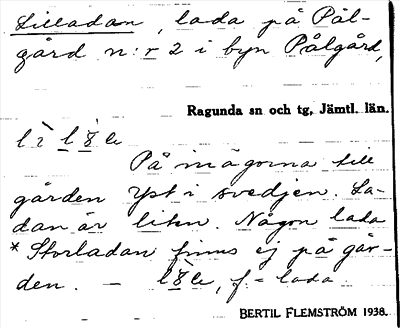 Lilladan, lada på Pål-
gård n:r 2 i byn Pålgård,
Ragunda sn och tg, Jämtl. län.
På inägorna till
gården Yst i svedjen. La-
dan är liten. Någon lada
*Storladan finns ej på går-
den. –
f = lada
BERTIL FLEMSTRÖM 1938.